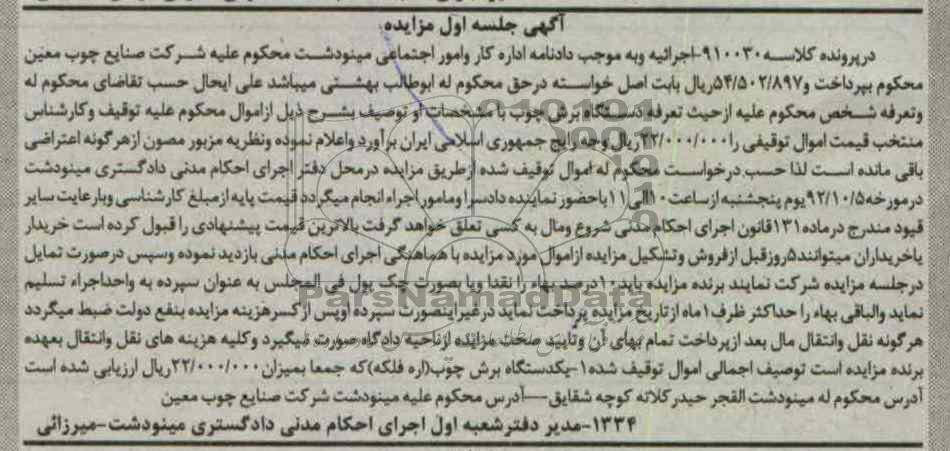 آگهی جلسه اول مزایده
درپرونده کلاسه ۹۱۰۰۳۰-اجرائیه وبه موجب دادنامه اداره کار وامور اجتماعی مینودشت محکوم علیه شرکت صنایع چوب معین
محکوم بپرداخت و۵۴/۵۰۲/۸۹۷ریال بابت اصل خواسته درحق محکوم له ابوطالب بهشتی میباشد علی ایحال حسب تقاضای محکوم له
وتعرفه شخص محکوم علیه ازحیث تعرفه دستگاه برش چوب با مشخصات او توصیف بشرح ذیل ازاموال محکوم علیه توقیف وکارشناس
منتخب قیمت اموال توقیفی را۲۲/۰۰۰/۰۰۰ریال وجه رایج جمهوری اسلامی ایران برآورد واعلام نموده ونظریه مزبور مصون ازهرگونه اعتراضی
باقی مانده است لذا حسب درخواست محکوم له اموال توقیف شده ازطریق مزایده درمحل دفتر اجرای احکام مدنی دادگستری مینودشت
درمورخه۹۲/۱۰/۵یوم پنجشنبه ازساعت۱۰الی۱۱باحضور نماینده دادسرا ومامور اجراء انجام میگردد قیمت پایه ازمبلغ کارشناسی وبارعایت سایر
قیود مندرج درماده۱۳۱قانون اجرای احکام مدنی شروع ومال به کسی تعلق خواهد گرفت بالاترین قیمت پیشنهادی را قبول کرده است خریدار
یاخریداران میتوانند۵روزقبل ازفروش وتشکیل مزایده ازاموال مورد مزایده با هماهنگی اجرای احکام مدنی بازدید نموده وسپس درصورت تمایل
درجلسه مزایده شرکت نمایند برنده مزایده باید۱۰درصد بهاء را نقدا ویا بصورت چک پول فی المجلس به عنوان سپرده به واحداجراء تسلیم
نماید والباقی بهاء را حداکثر ظرف۱ماه ازتاریخ مزایده پرداخت نماید درغیراینصورت سپرده اوپس ازکسرهزینه مزایده بنفع دولت ضبط میگردد
هرگونه نقل وانتقال مال بعد ازپرداخت تمام بهای آن وتأیید صحت مزایده ازناحیه دادگاه صورت میگیرد وکلیه هزینه های نقل وانتقال بعهده
برنده مزایده است توصیف اجمالی اموال توقیف شده۱-یکدستگاه برش چوب(اره فلکه)که جمعا بمیزان۲۲/۰۰۰/۰۰۰ریال ارزیابی شده است
آدرس محکوم له مینودشت القجر حیدرکلاته کوچه شقایق—آدرس محکوم علیه مینودشت شرکت صنایع چوب معین
۱۳۳۴-مدیر دفترشعبه اول اجرای احکام مدنی دادگستری مینودشت-میرزائی
ParsNamadData